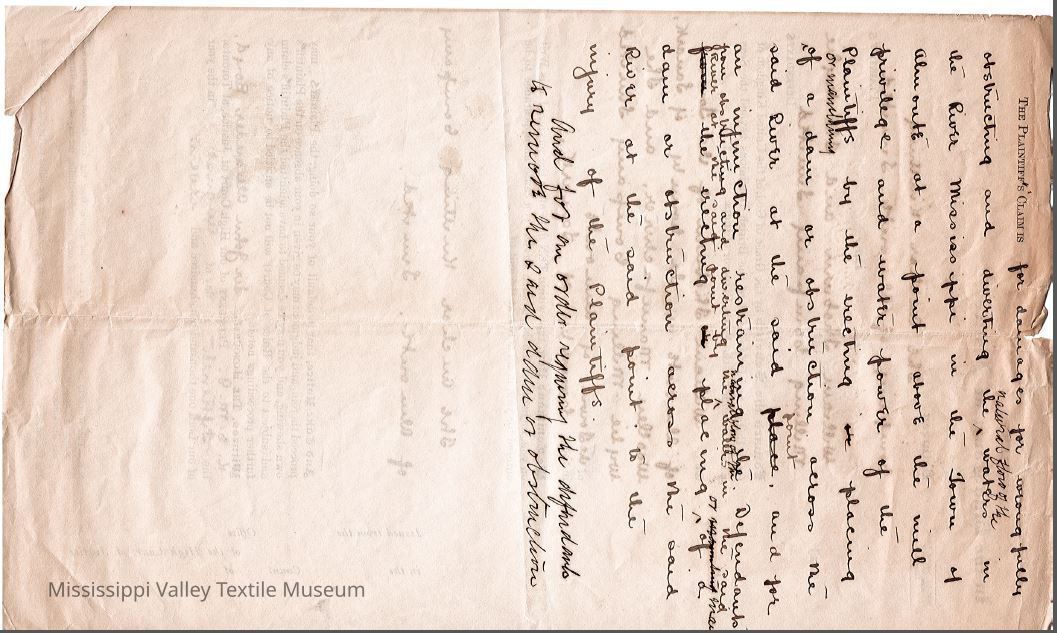 THE PLAINTIFF'S CLAIM IS for damages for wrongfully
natural flow of the
obstructing and diverting the waters in
the River Mississippi in the Town of
Almonte at a point above the mill
privilege and water power of the
Plaintiffs by the erecting or placing
or maintaining
of a dam or obstruction across the
point
said River at the said place, and for
an injunction restraining the Defendants
from obstructing and diverting the water in the said
River at the said point by
from the erecting or placing of a
dam or obstruction across the said
River at the said point to the
injury of the Plaintiffs.
And for an order requiring the defendants
to remove the said dam or obstruction
Mississippi Valley Textile Museum